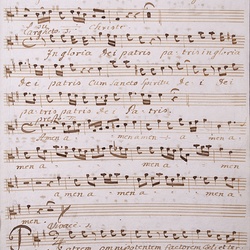 Christe
Larghetto
In gloria dei patris patris in gloria
dei patris Cum Sancto Spiritu dei dei
patris patris dei Patris
amen a men a men a
men a a men a
men a a men a men a
men
Patrem omnipotentem factorem coeli et